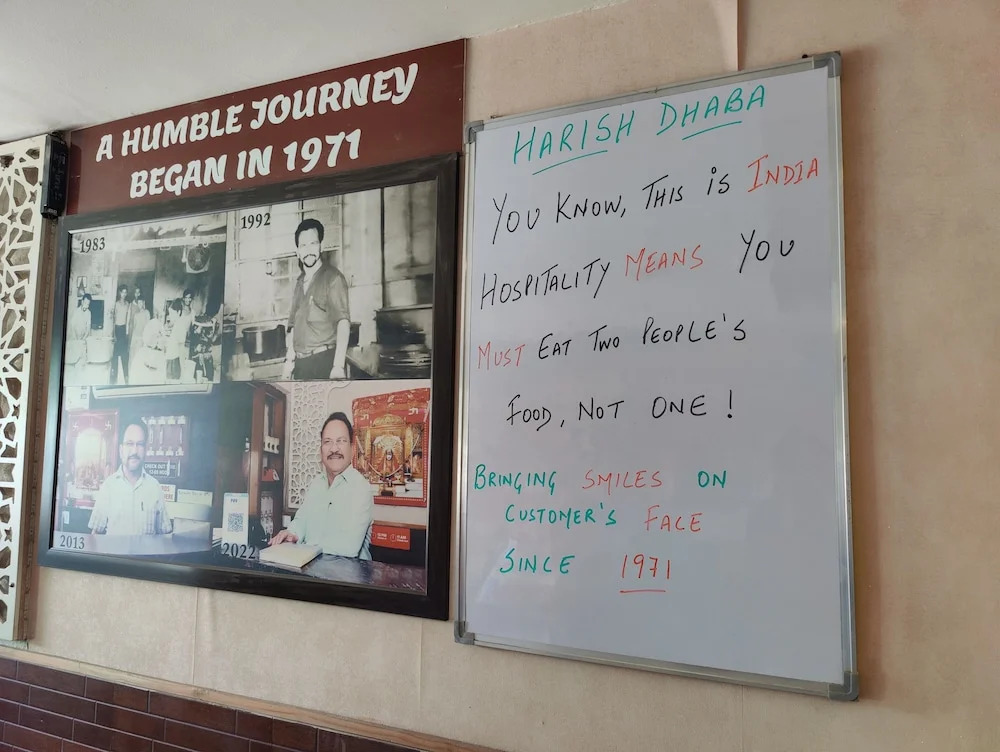 A HUMBLE JOURNEY
BEGAN IN 1971
1983
1992
2013
2022
HARISH DHABA
YOU KNOW, THIS is INDIA
HOSPITALITY MEANS YOU
MUST EAT TWO PEOPLE'S
FOOD, NOT ONE !
BRINGING SMILES ON
CUSTOMER'S FACE
SINCE 1971